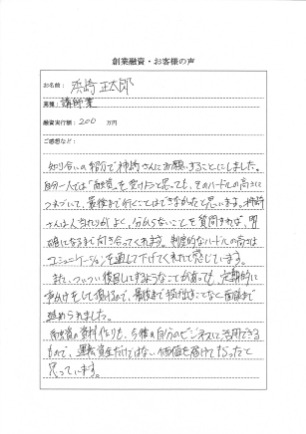 創業融資・お客様の声
お名前: 浜崎正太郎
業種: 講師業
融資実行額: 200 万円
ご感想など:
知り合いの紹介で神崎さんにお願いすることにしました。
自分一人では「融資」を受けようと思っても、そのハードルの高さに
つまづいて、最後まで行くことはできなかったと思います。神崎
さんは人当たりがよく、分からないことを質問すれば、明
確になるまで向き合ってくれます。制度的なハードルの高さは
コミュニケーションを通して下げてくれたと感じています。
また、ついつい後回しにするようなことがあっても、定期的に
声かけをして頂けるので、最後まで気付きことなく面談まで
進められました。
融資の資料作りも、今後の自分のビジネスに活用できる
もので、運転資金だけではない価値を届けて下さったと
思っています。